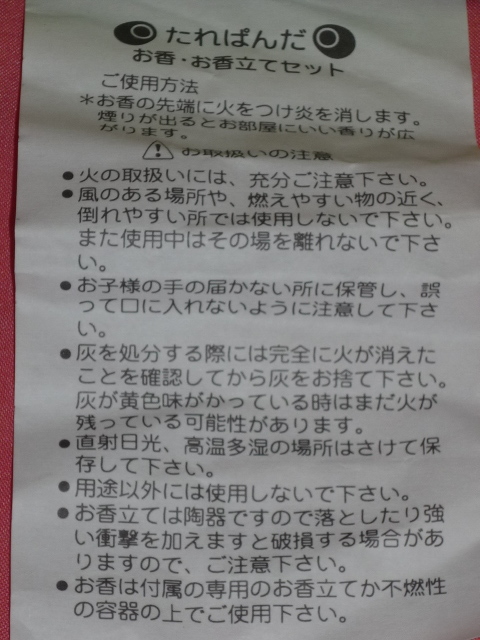 たれぱんだ
お香・お香立てセット
ご使用方法
＊お香の先端に火をつけ炎を消します。
煙りが出るとお部屋にいい香りが広
がります。
お取扱いの注意
●火の取扱いには、充分ご注意下さい。
●風のある場所や、燃えやすい物の近く、
倒れやすい所では使用しないで下さい。
また使用中はその場を離れないで下さ
い。
●お子様の手の届かない所に保管し、誤
って口に入れないように注意して下さ
い。
●灰を処分する際には完全に火が消えた
ことを確認してから灰をお捨て下さい。
灰が黄色味がかっている時はまだ火が
残っている可能性があります。
●直射日光、高温多湿の場所はさけて保
存して下さい。
●用途以外には使用しないで下さい。
●お香立ては陶器ですので落としたり強
い衝撃を加えますと破損する場合があ
りますので、ご注意下さい。
●お香は付属の専用のお香立てか不燃性
の容器の上でご使用下さい。